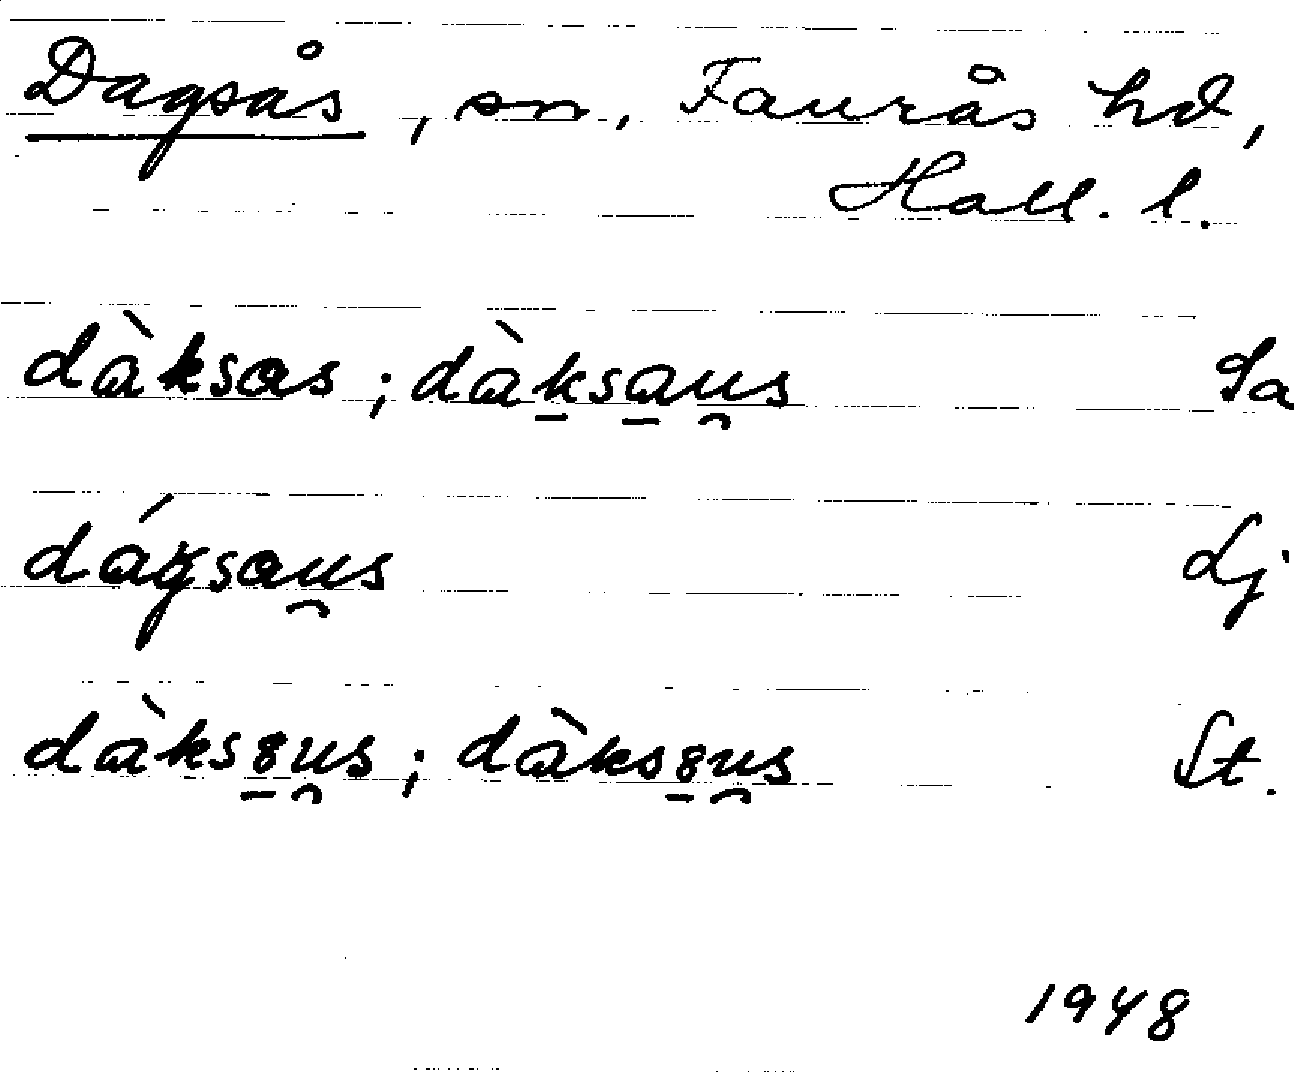 Dagsås, sn, Faurås hd,
Hall. l.
dɑ̀ksɑs; dɑ̀ḵsa̱u̯s Sa
dɑ́gsɑu̯s Lj
dɑ̀ks8̱u̯s; dɑ̀ks8̱u̯s St.
1948